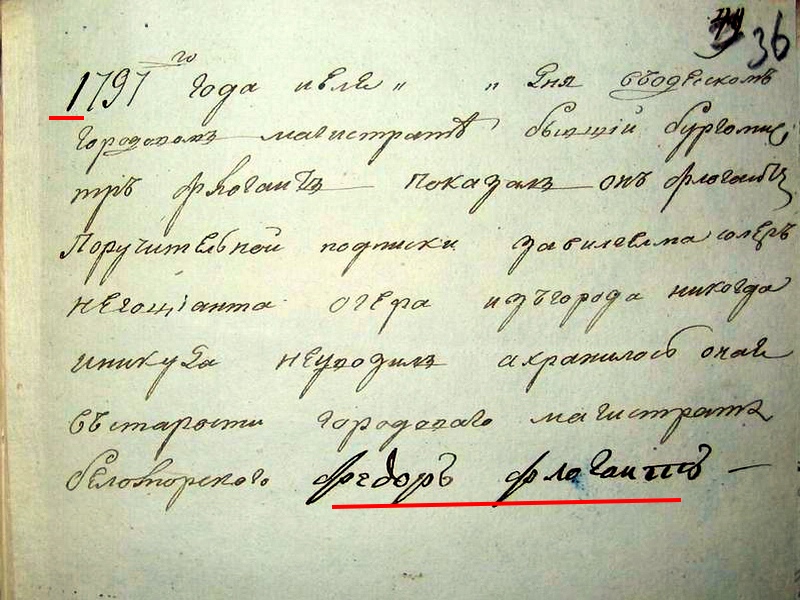 36
1797го года июля " " дня въодескомъ
городовомъ магистратѣ бывшiй бургомис
тръ флогаитъ показалъ онъ флогаитъ
поручительной подписки
негоцiанта изъгорода никогда
иникуда неуходилъ ахранилось онай
въстарости городоваго магистрата
Федоръ Флогаитъ —